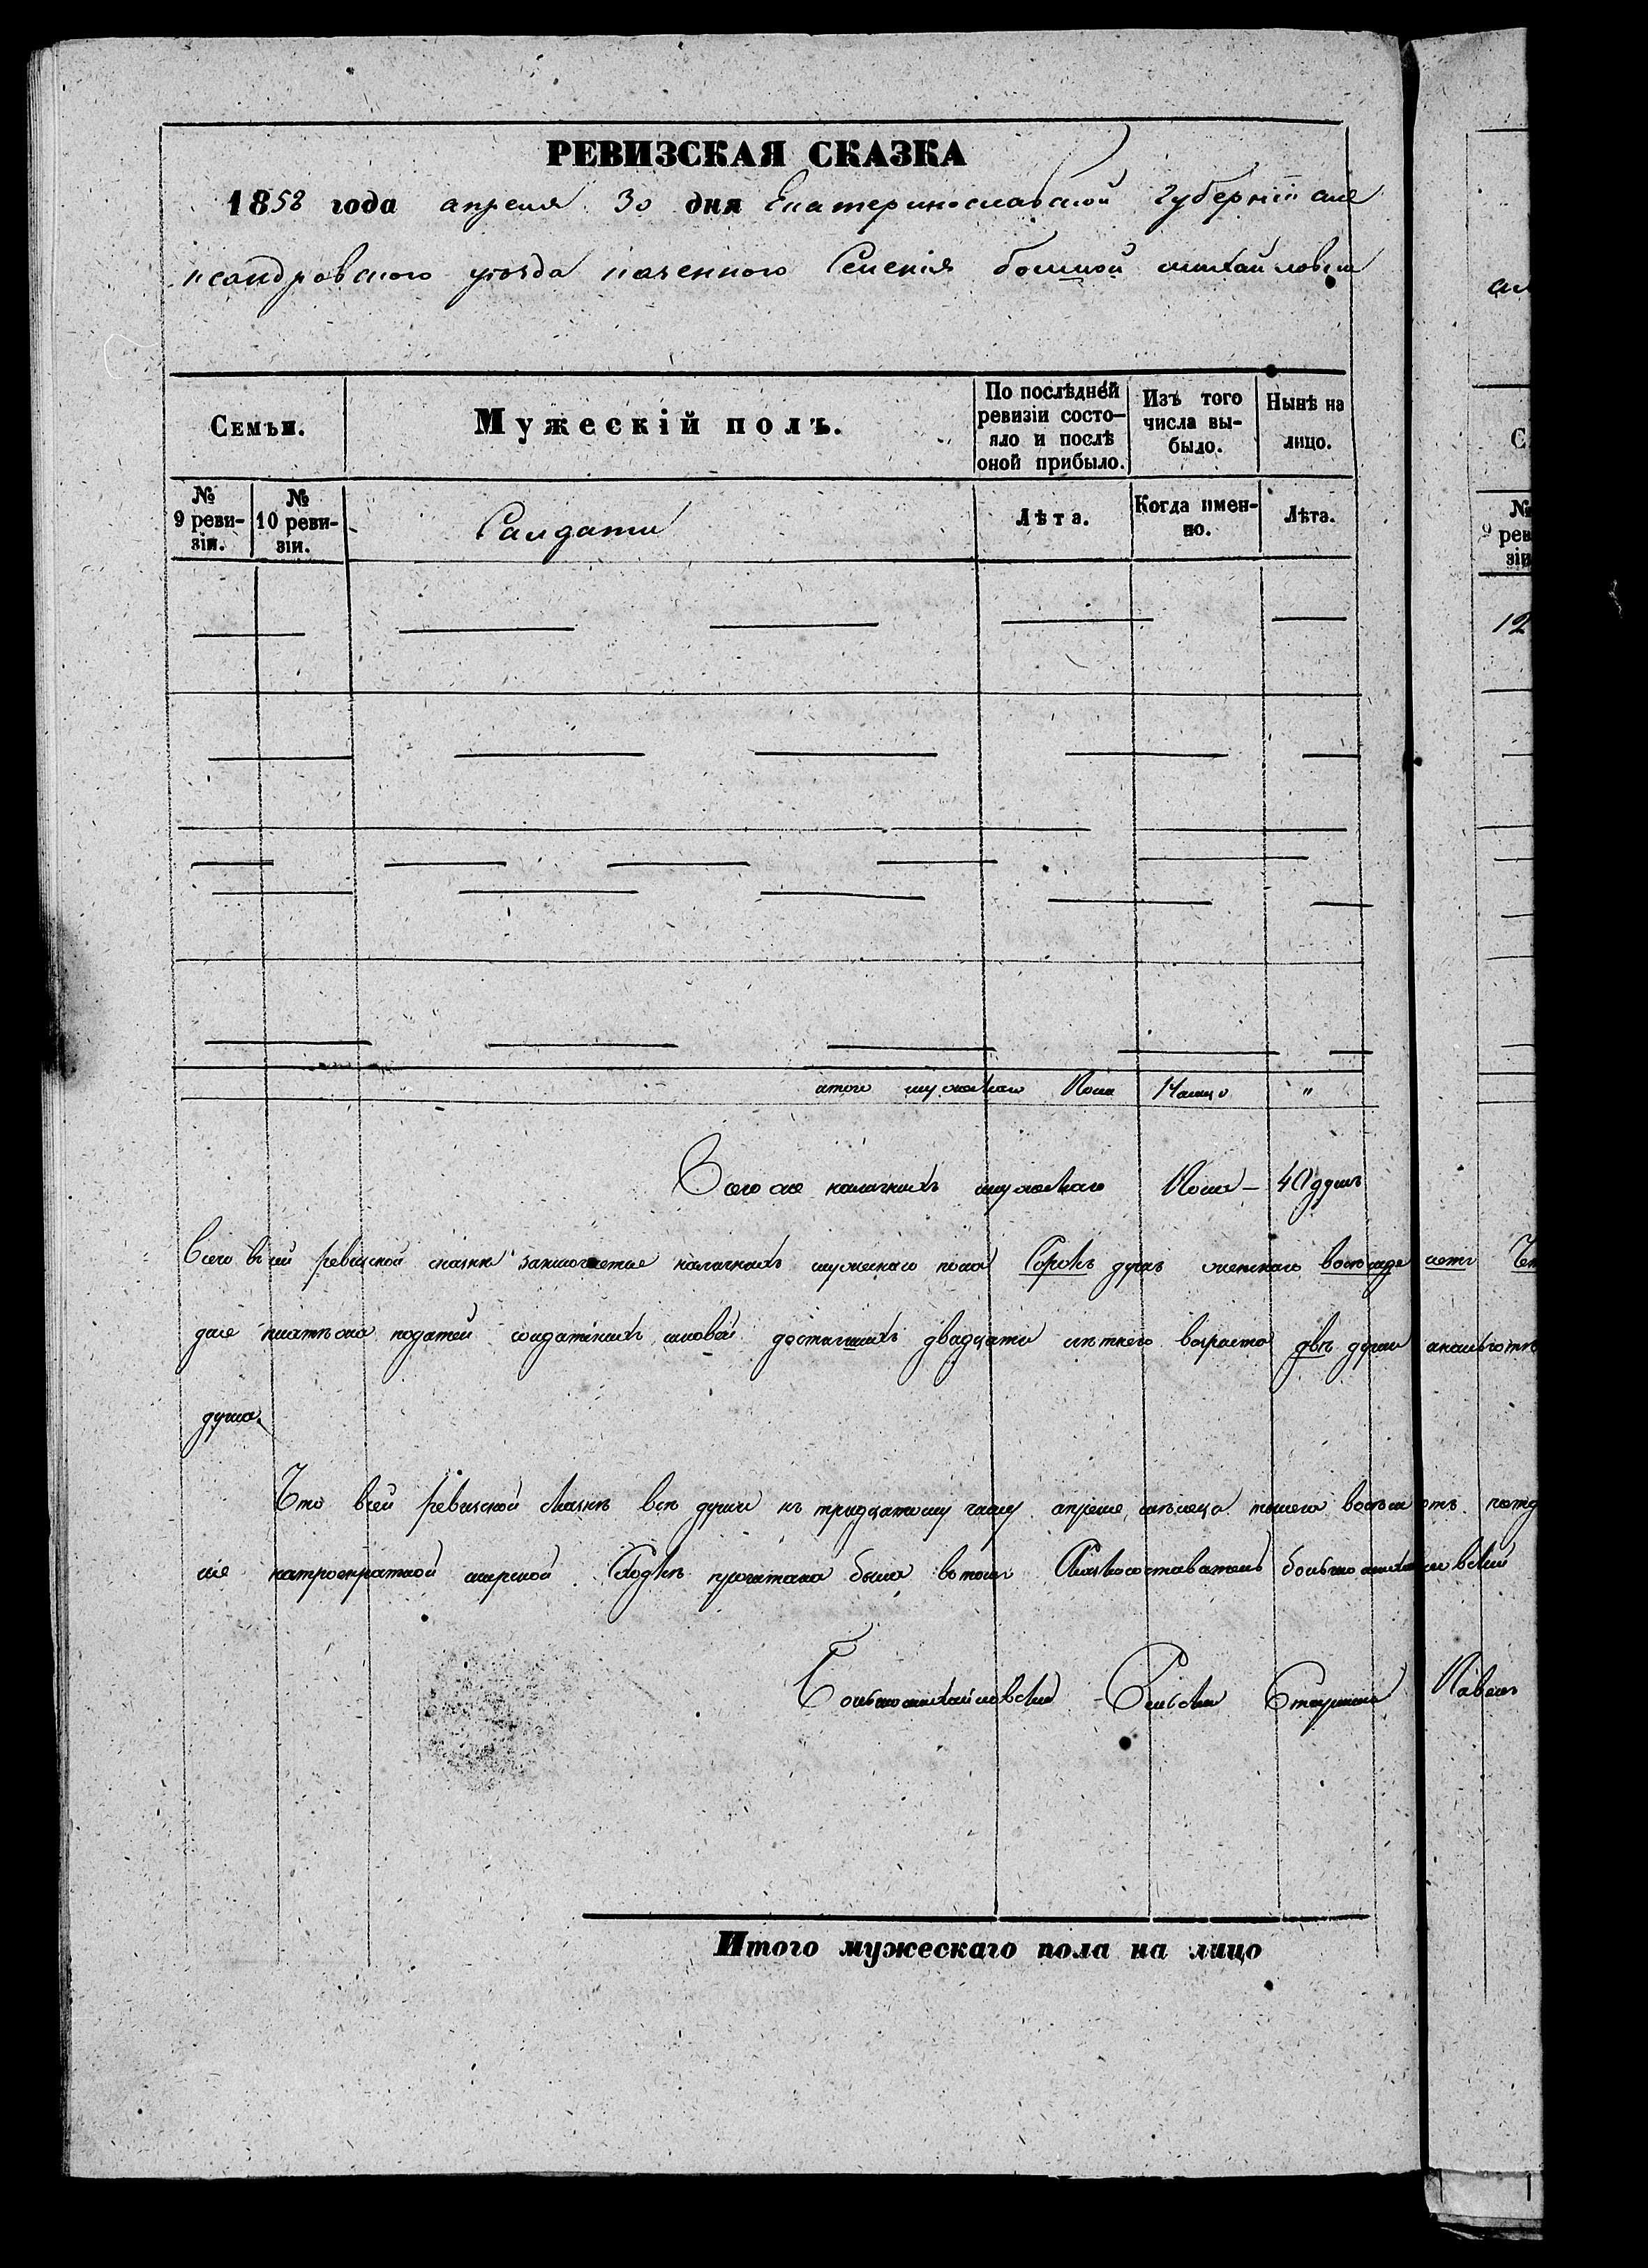 РЕВИЗСКАЯ СКАЗКА
1858 года апреля 30 дня Екатеринославской Губернiи але
ксандровского уезда казенного Селенiя болшой михайловки
Семьи.
Мужескiй полъ.
По послѣдней ревизiи состо-
яло и послѣ
оной прибыло.
Изъ того
числа вы-
было.
Нынѣ на
лицо.
№
9 реви-
зiи.
№
10 реви-
зiи.
Салдати
Лѣта.
Когда имен-
но.
Лѣта.
12
итого мужескаго Пола Налицо "
Всего же наличнихъ мужескаго Пола – 40 душъ
Всего в сей ревизской сказки заключается наличнихъ мужескаго пола Сорокъ душъ женскаго восемде сетъ
податей солдатскихъ синовей достигшихъ двадцати лѣтнего возраста двѣ души
душа.
Что всей Ревизской Сказкѣ всѣ души къ тридцатому числу апреля мѣсяца тысяча восемсотъ
мирской Сходкѣ прочитана была вотом Сказкосоставатель большемихайловский
Большемихайловский Сельский Старшина Павелъ
Итого мужескаго пола на лицо